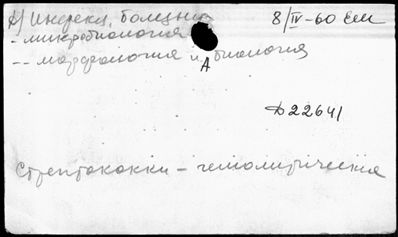 А) Инфекц. болезни 8/IV-60 Ем
- микробиология
-- морфология и биология
А
Д22641
Стрептококки - гемолитические